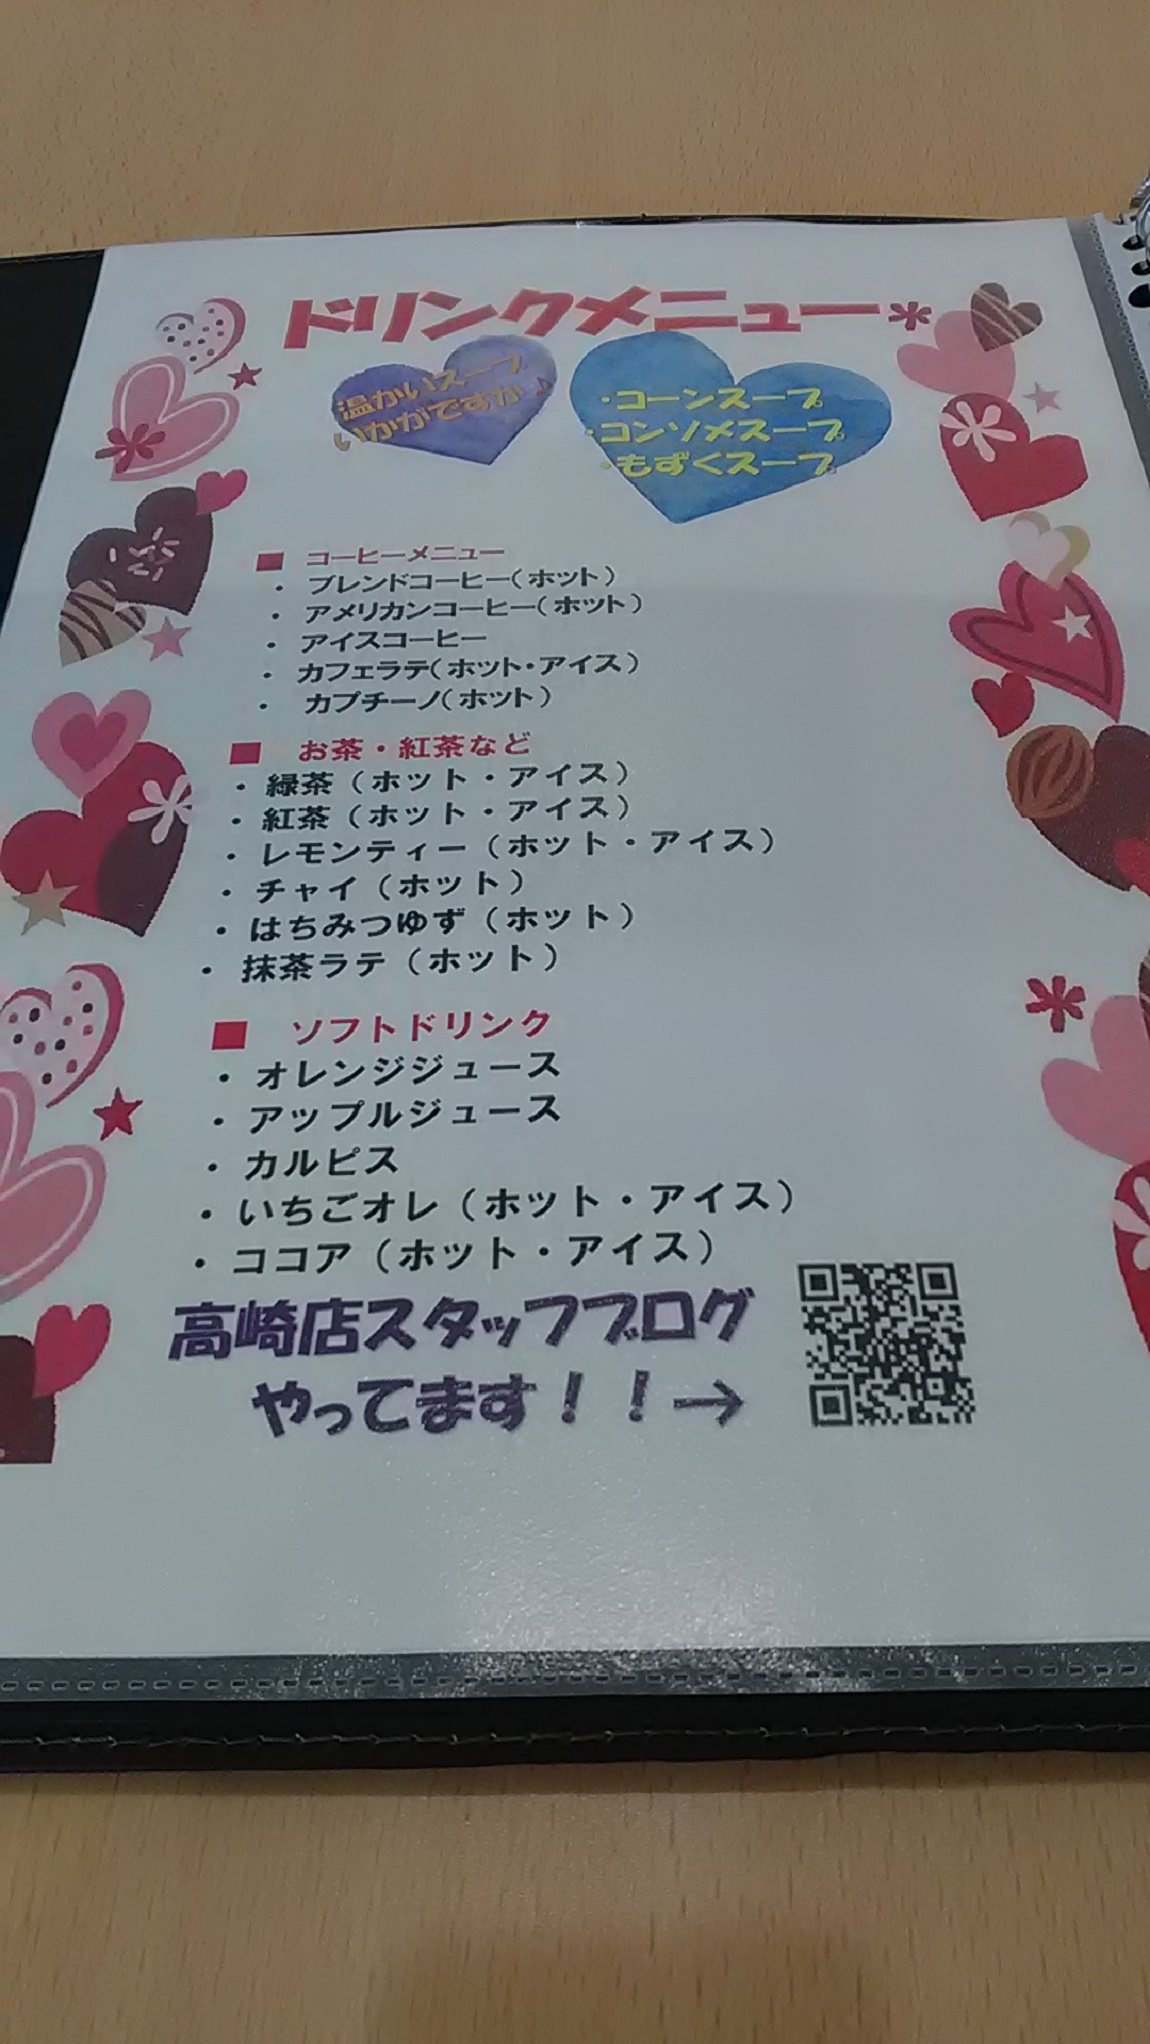 ドリンクメニュー*
温かいスープ
いかがですか♪
・コーンスープ
・コンソメスープ
・もずくスープ
■ コーヒーメニュー
・ ブレンドコーヒー(ホット)
・ アメリカンコーヒー(ホット)
・ アイスコーヒー
・ カフェラテ(ホット・アイス)
・ カプチーノ(ホット)
■ お茶・紅茶など
・ 緑茶(ホット・アイス)
・ 紅茶(ホット・アイス)
・ レモンティー(ホット・アイス)
・ チャイ(ホット)
・ はちみつゆず(ホット)
・ 抹茶ラテ(ホット)
■ ソフトドリンク
・ オレンジジュース
・ アップルジュース
・ カルピス
・ いちごオレ(ホット・アイス)
・ ココア(ホット・アイス)
高崎店スタッフブログ
やってます!!→